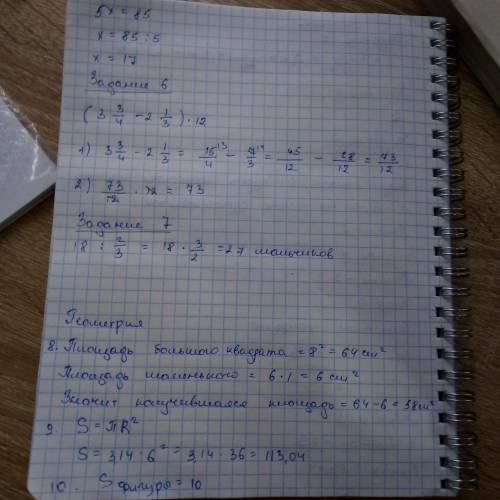 5x = 85
x = 85 : 5
x = 17
Задание 6
(3 3/4 - 2 1/3) · 12
1) 3 3/4 - 2 1/3 = 15/4 - 7/3 = 45/12 - 28/12 = 73/12
2) 73/12 · 12 = 73
Задание 7
18 : 2/3 = 18 · 3/2 = 27 мальчиков
Геометрия
8. Площадь большого квадрата = 8² = 64 cm²
Площадь маленького = 6 · 1 = 6 cm²
Значит получившаяся площадь = 64 - 6 = 58 m²
9. S = πR²
S = 3,14 · 6² = 3,14 · 36 = 113,04
10. S фигуры = 10